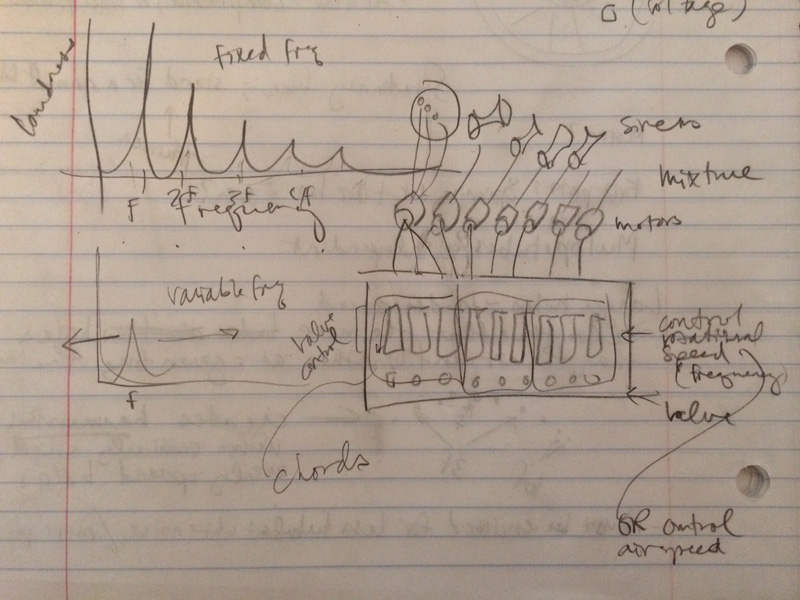 (voltage)
Fixed freq
Loudness
sirens
mixture
F 2F 3F 4F
frequency
motors
variable freq
valve
control
control
rotational
speed
(frequency)
F
valve
chords
OR control
airspeed